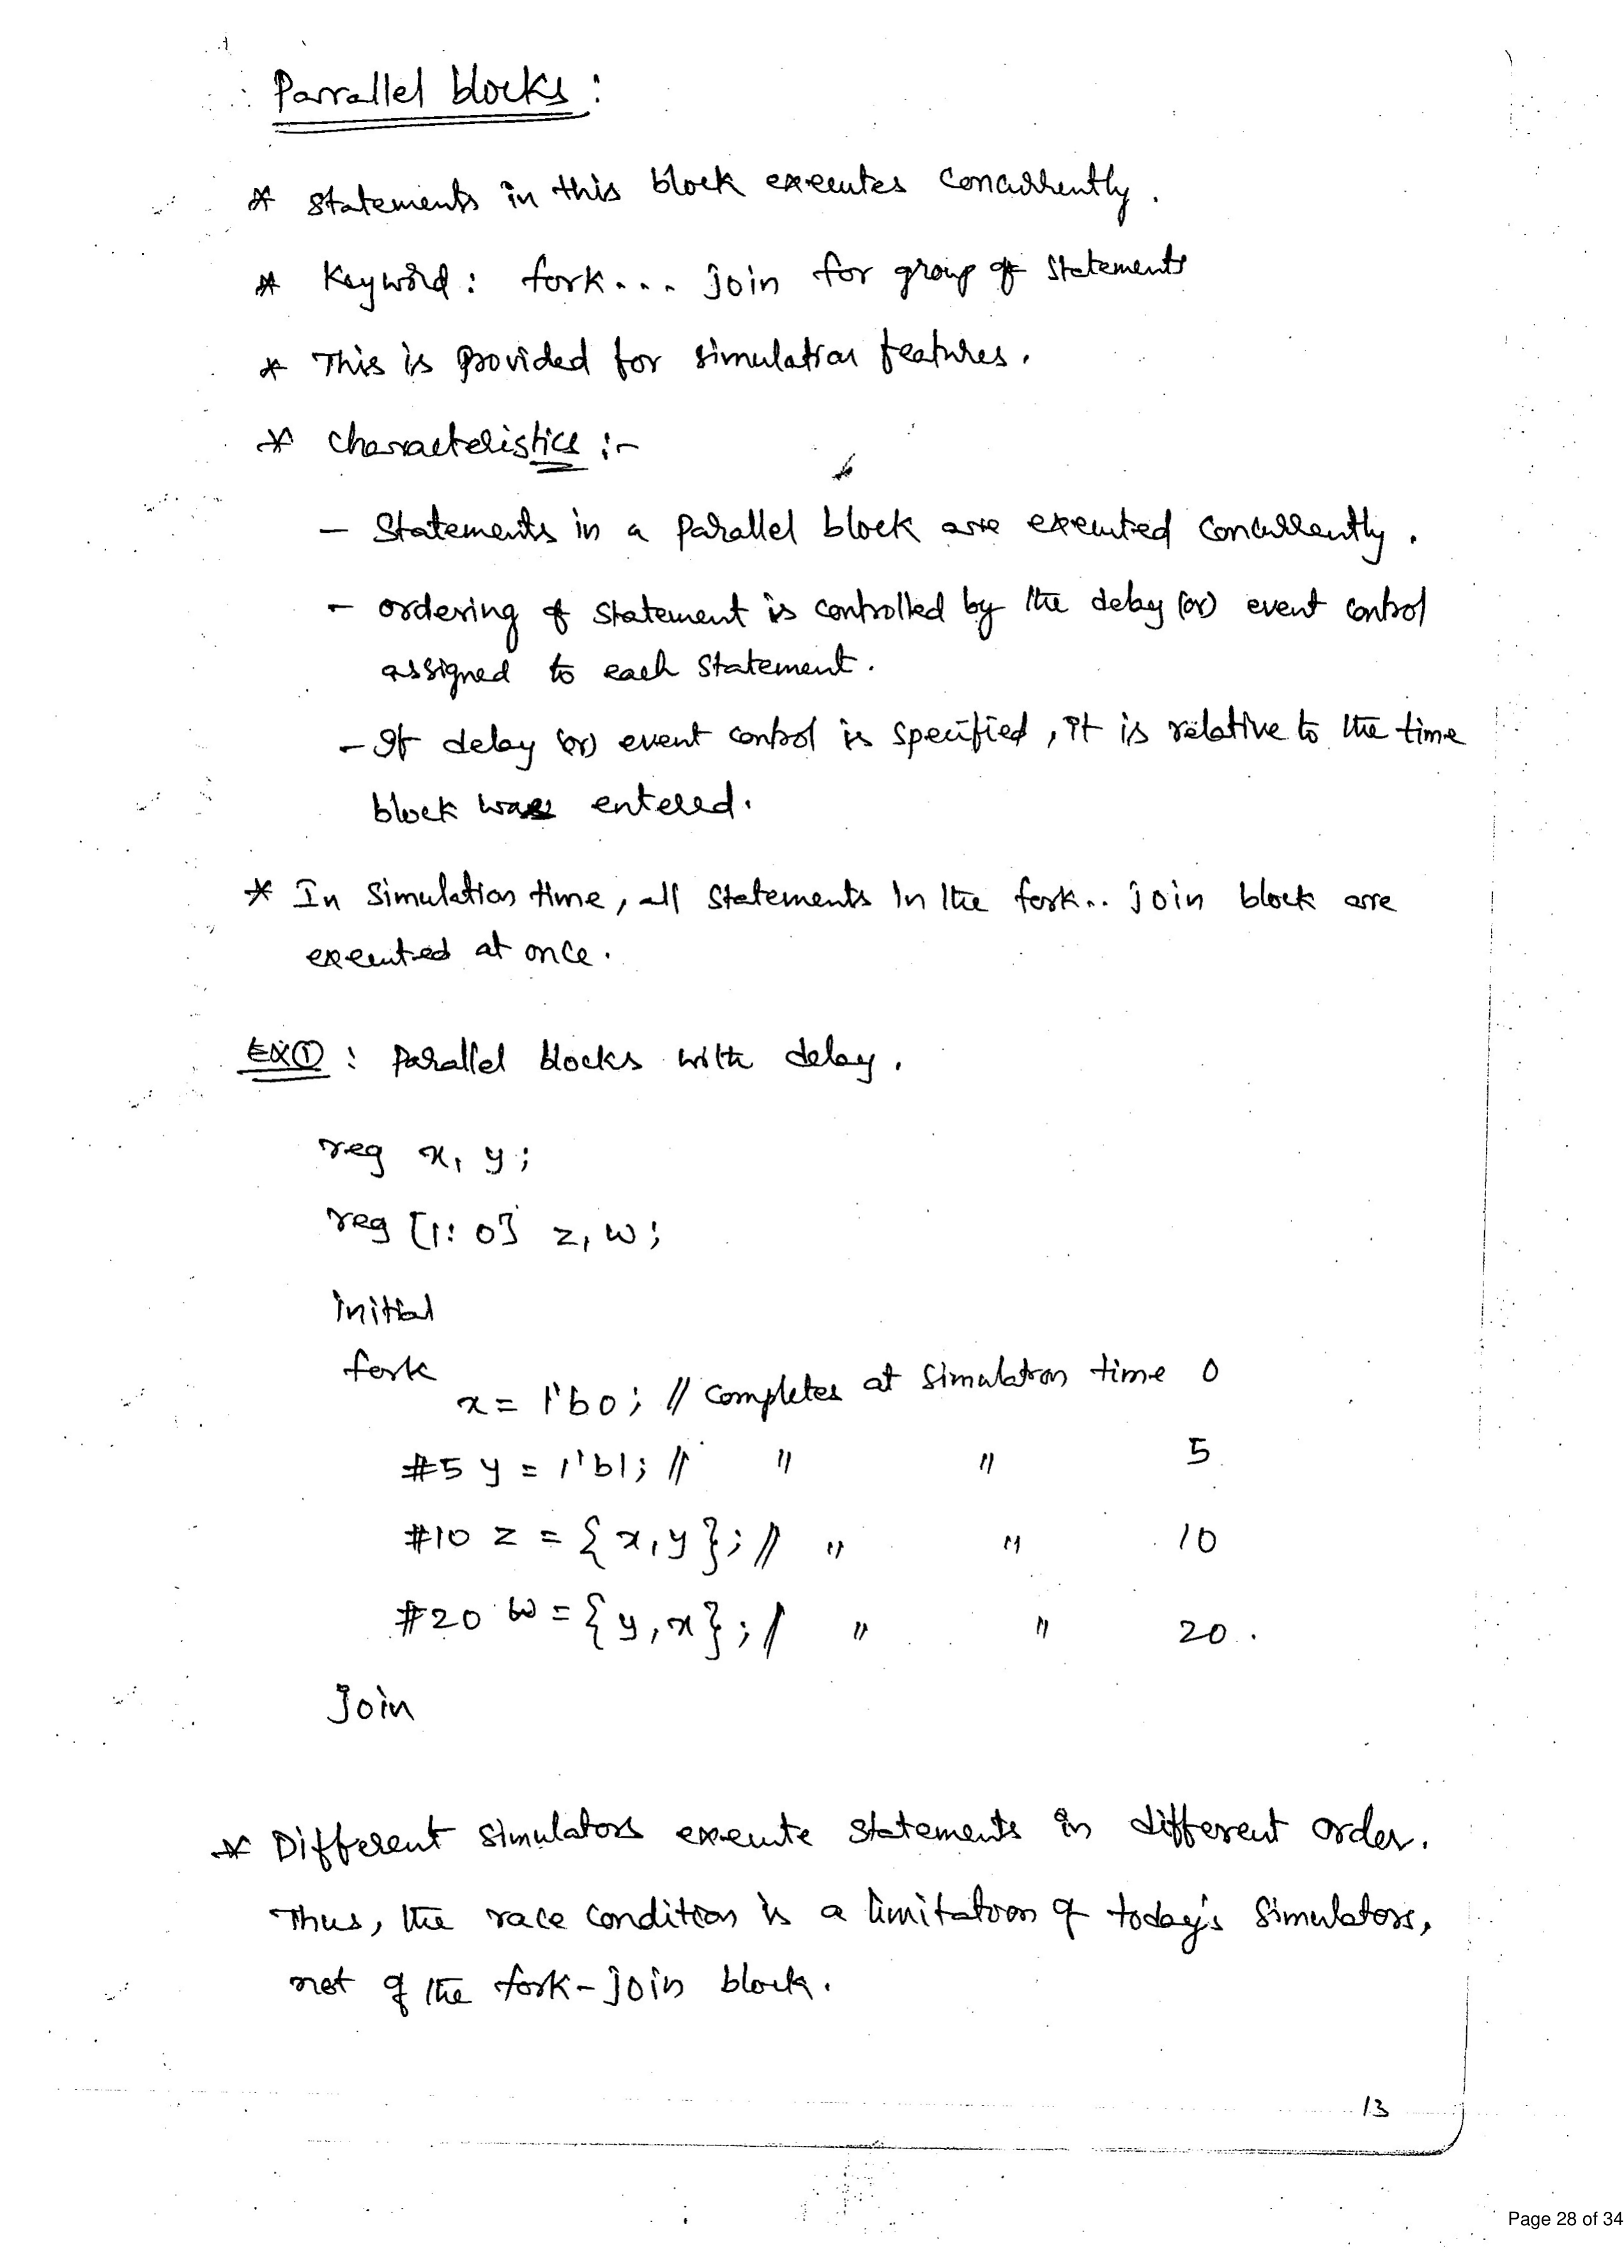 Parrallel blocks :
* Statements in this block executes concurrently.
* Keyword : fork... join for group of statements
* This is provided for simulation features.
* characteristics :-
- Statements in a parallel block are executed concurrently.
- ordering of statement is controlled by the delay (or) event control
assigned to each statement.
- If delay (or) event control is specified, it is relative to the time
block was entered.
* In simulation time, all statements in the fork.. join block are
executed at once.
EX① : parallel blocks with delay.
reg x, y;
reg [1:0] z, w;
initial
fork
x = 1'b0; // completes at simulation time 0
#5 y = 1'b1; // " " 5
#10 z = {x,y}; // " " 10
#20 w = {y,x}; / " " 20.
Join
* Different simulators execute statements in different order.
Thus, the race condition is a limitation of today's simulators,
not of the fork-join block.
13
Page 28 of 34